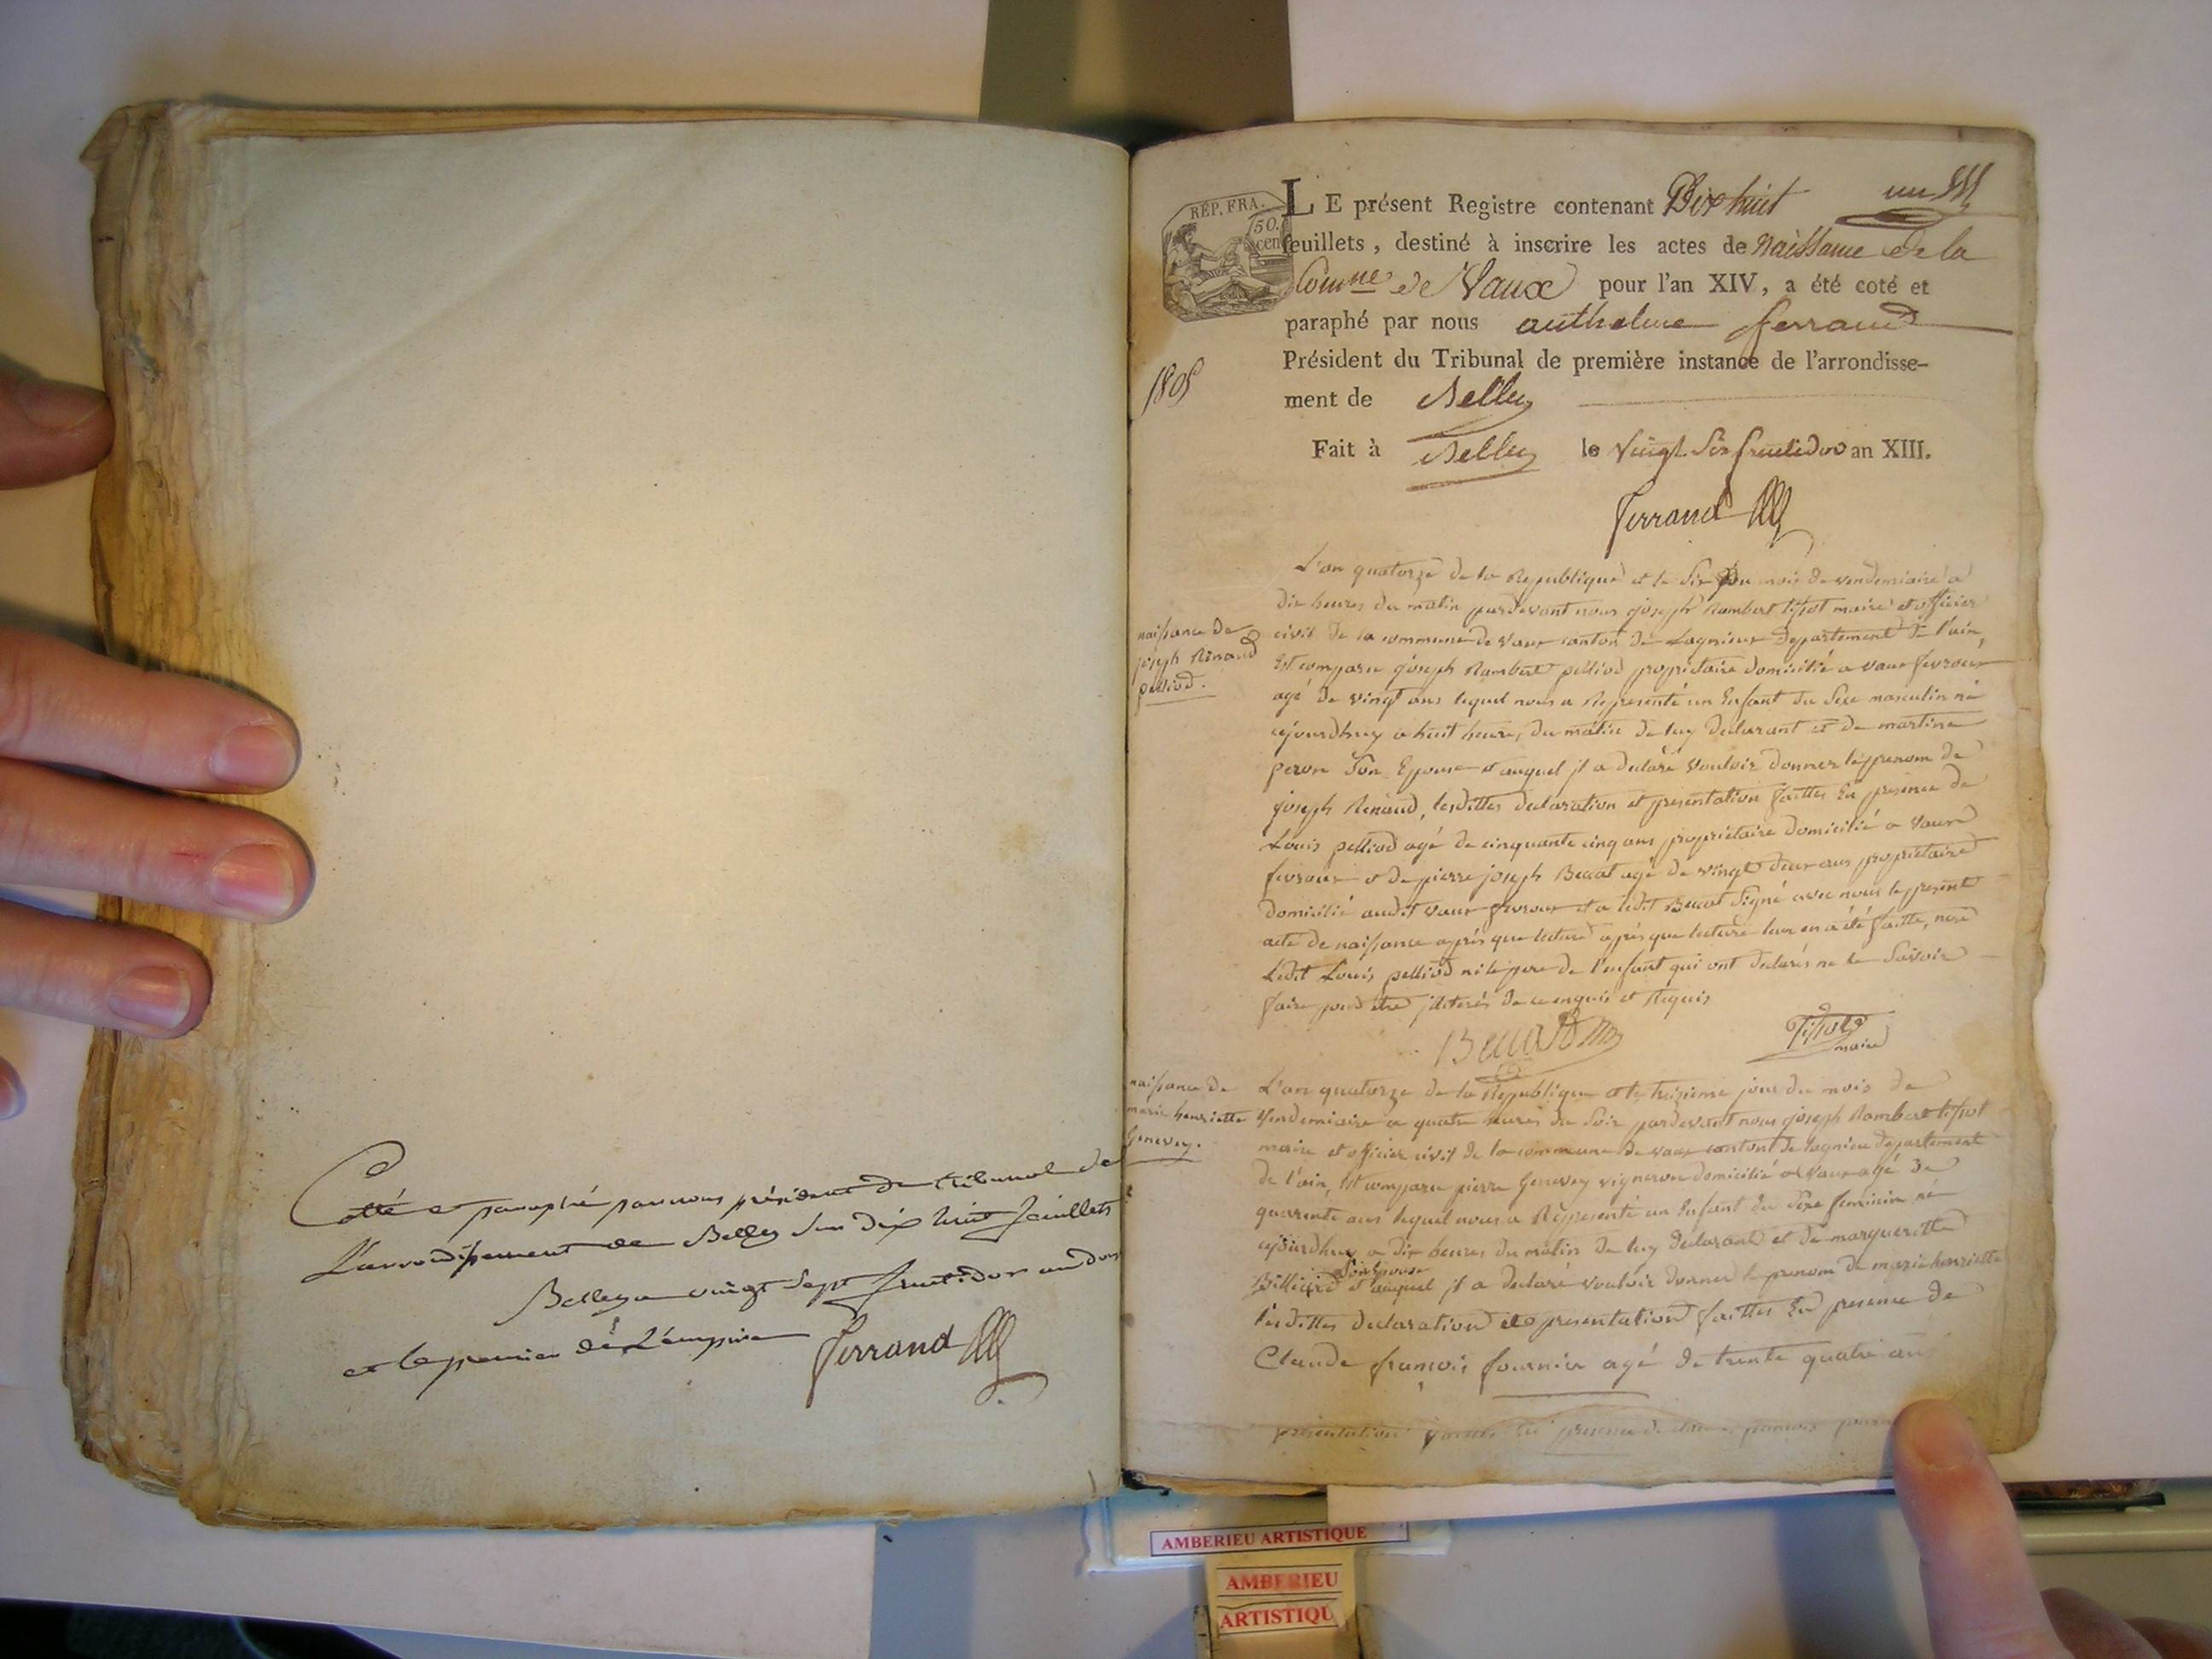 Cotté et paraphé par nous président du tribunal de
L'arrondissement de Belley sur dix huit feuillets
Belley le vingt sept fructidor an
et le premier de L'empire Ferrand
RÉP. FRA.
50.
cen
LE présent Registre contenant Dix huit un
feuillets, destiné à inscrire les actes de Naissance de la
Comne de Vaux pour l'an XIV, a été coté et
paraphé par nous anthelme ferrand
Président du Tribunal de première instance de l'arrondisse-
ment de Belley
1805
Fait à Belley le vingt Six fructidor an XIII.
Ferrand
naissance de
joseph Renaud
pelliod.
L'an quatorze de la Republique et le Six du mois de vendemiaire a
dix heures du matin pardevant nous joseph Rambert tissot maire et officier
civil de la commune de Vaux canton de Lagnieux departement de l'ain,
Est comparu joseph Rambert pelliod propriétaire domicilié a vaux fevroux
agé de vingt ans lequel nous a Representé un Enfant du Sexe masculin né
ajourdhuy a huit heures du matin de luy declarant et de martine
peron Son Epouse et auquel jl a declaré vouloir donner le prenom de
joseph Renaud, lesdittes declaration et presentation faittes En presence de
Louis pelliod agé de cinquante cinq ans propriétaire domicilié a Vaux
fevroux et de pierre joseph Bucat agé de vingt deux ans propriétaire
domicilié audit vaux fevroux et a ledit Bucat Signé avec nous le present
acte de naissance après que lecture après que lecture leur en a été faitte, non
Ledit Louis pelliod ni le pere de l'enfant qui ont declarés ne le Savoir
faire pour etre jlliterés de ce enquis et Requis
Tissot
maire
naissance de
marie henriette
Genevey.
L'an quatorze de la Republique et le treizieme jour du mois de
Vendemiaire a quatre heures du Soir pardevant nous joseph Rambert tissot
maire et officier civil de la commune de vaux canton de lagnieu departement
de l'ain, Est comparu pierre Genevey vigneron domicilié a Vaux agé de
quarente ans lequel nous a Representé un Enfant du Sexe feminin né
ajourdhuy a dix heures du matin de luy declarant et de margueritte
Son Epouse
Billiard et auquel jl a declaré vouloir donner le prenom de marie henriette
lesdittes declaration et presentation faittes En presence de
Claude françois fournier agé de trente quatre ans
presentation faittes En presence de françois
AMBERIEU ARTISTIQUE
AMBERIEU
ARTISTIQU